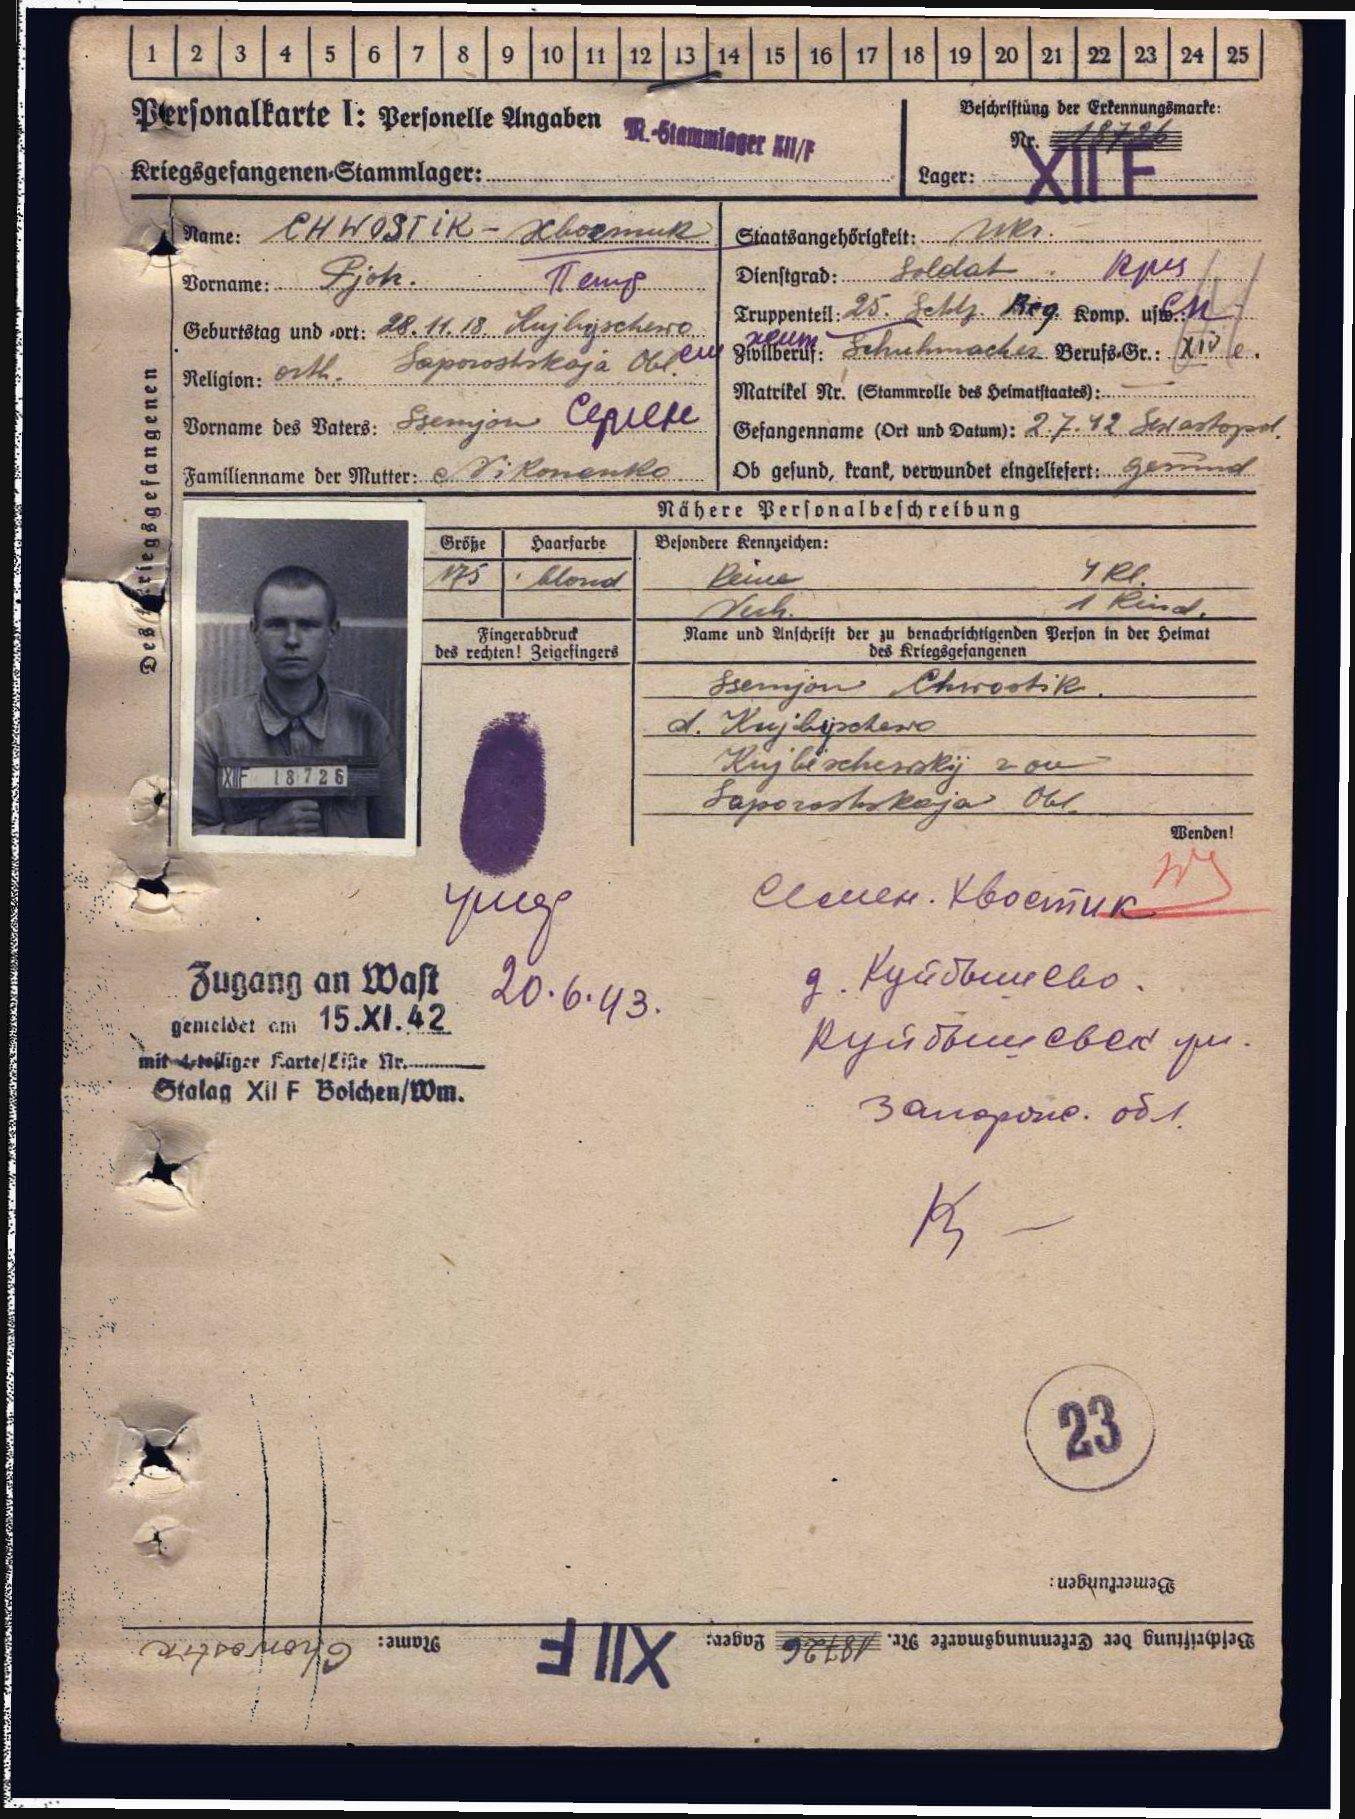 1 2 3 4 5 6 7 8 9 10 11 12 13 14 15 16 17 18 19 20 21 22 23 24 25
Personalkarte I: Personelle Angaben
M.-Stammlager XII/F
Kriegsgefangenen-Stammlager:
Beschriftung der Erkennungsmarke:
Nr. 18726
Lager: XII F
Des Kriegsgefangenen
Name: CHWOSTIK - Хвостик
Vorname: Pjotr. Петр
Geburtstag und -ort: 28.11.18. Kujbyschewo
Religion: orth. Saporoshskaja Obl.
Vorname des Vaters: Ssemjon
Familienname der Mutter: Nikonenko
Staatsangehörigkeit: Ukr.
Dienstgrad: Soldat
Truppenteil: 25. Schtz. Reg. Komp. usw.:
Zivilberuf: Schuhmacher Berufs-Gr.: XIV e.
Matrikel Nr. (Stammrolle des Heimatstaates): —
Gefangenname (Ort und Datum): 2.7.42 Sewastopol.
Ob gesund, krank, verwundet eingeliefert: gesund
Nähere Personalbeschreibung
Größe Haarfarbe Besondere Kennzeichen:
175 blond Keine 4 Kl.
Verh. 1 Kind.
Fingerabdruck
des rechten! Zeigefingers
Name und Anschrift der zu benachrichtigenden Person in der Heimat
des Kriegsgefangenen
Ssemjon Chwostik.
d. Kujbyschewo
Kujbischewskij
Saporoshskaja Obl.
XIIF 18726
Wenden!
Семен. Хвостик
20.6.43.
д. Куйбышево.
Куйбышевск
Запорож. обл.
Zugang an Wast
gemeldet am 15.XI.42
mit 4-teiliger Karte/Liste Nr.
Stalag XII F Bolchen/Wm.
23
Bemerkungen:
Beschriftung der Erkennungsmarke Nr. 18726 Lager: XII F Name: Chwostik